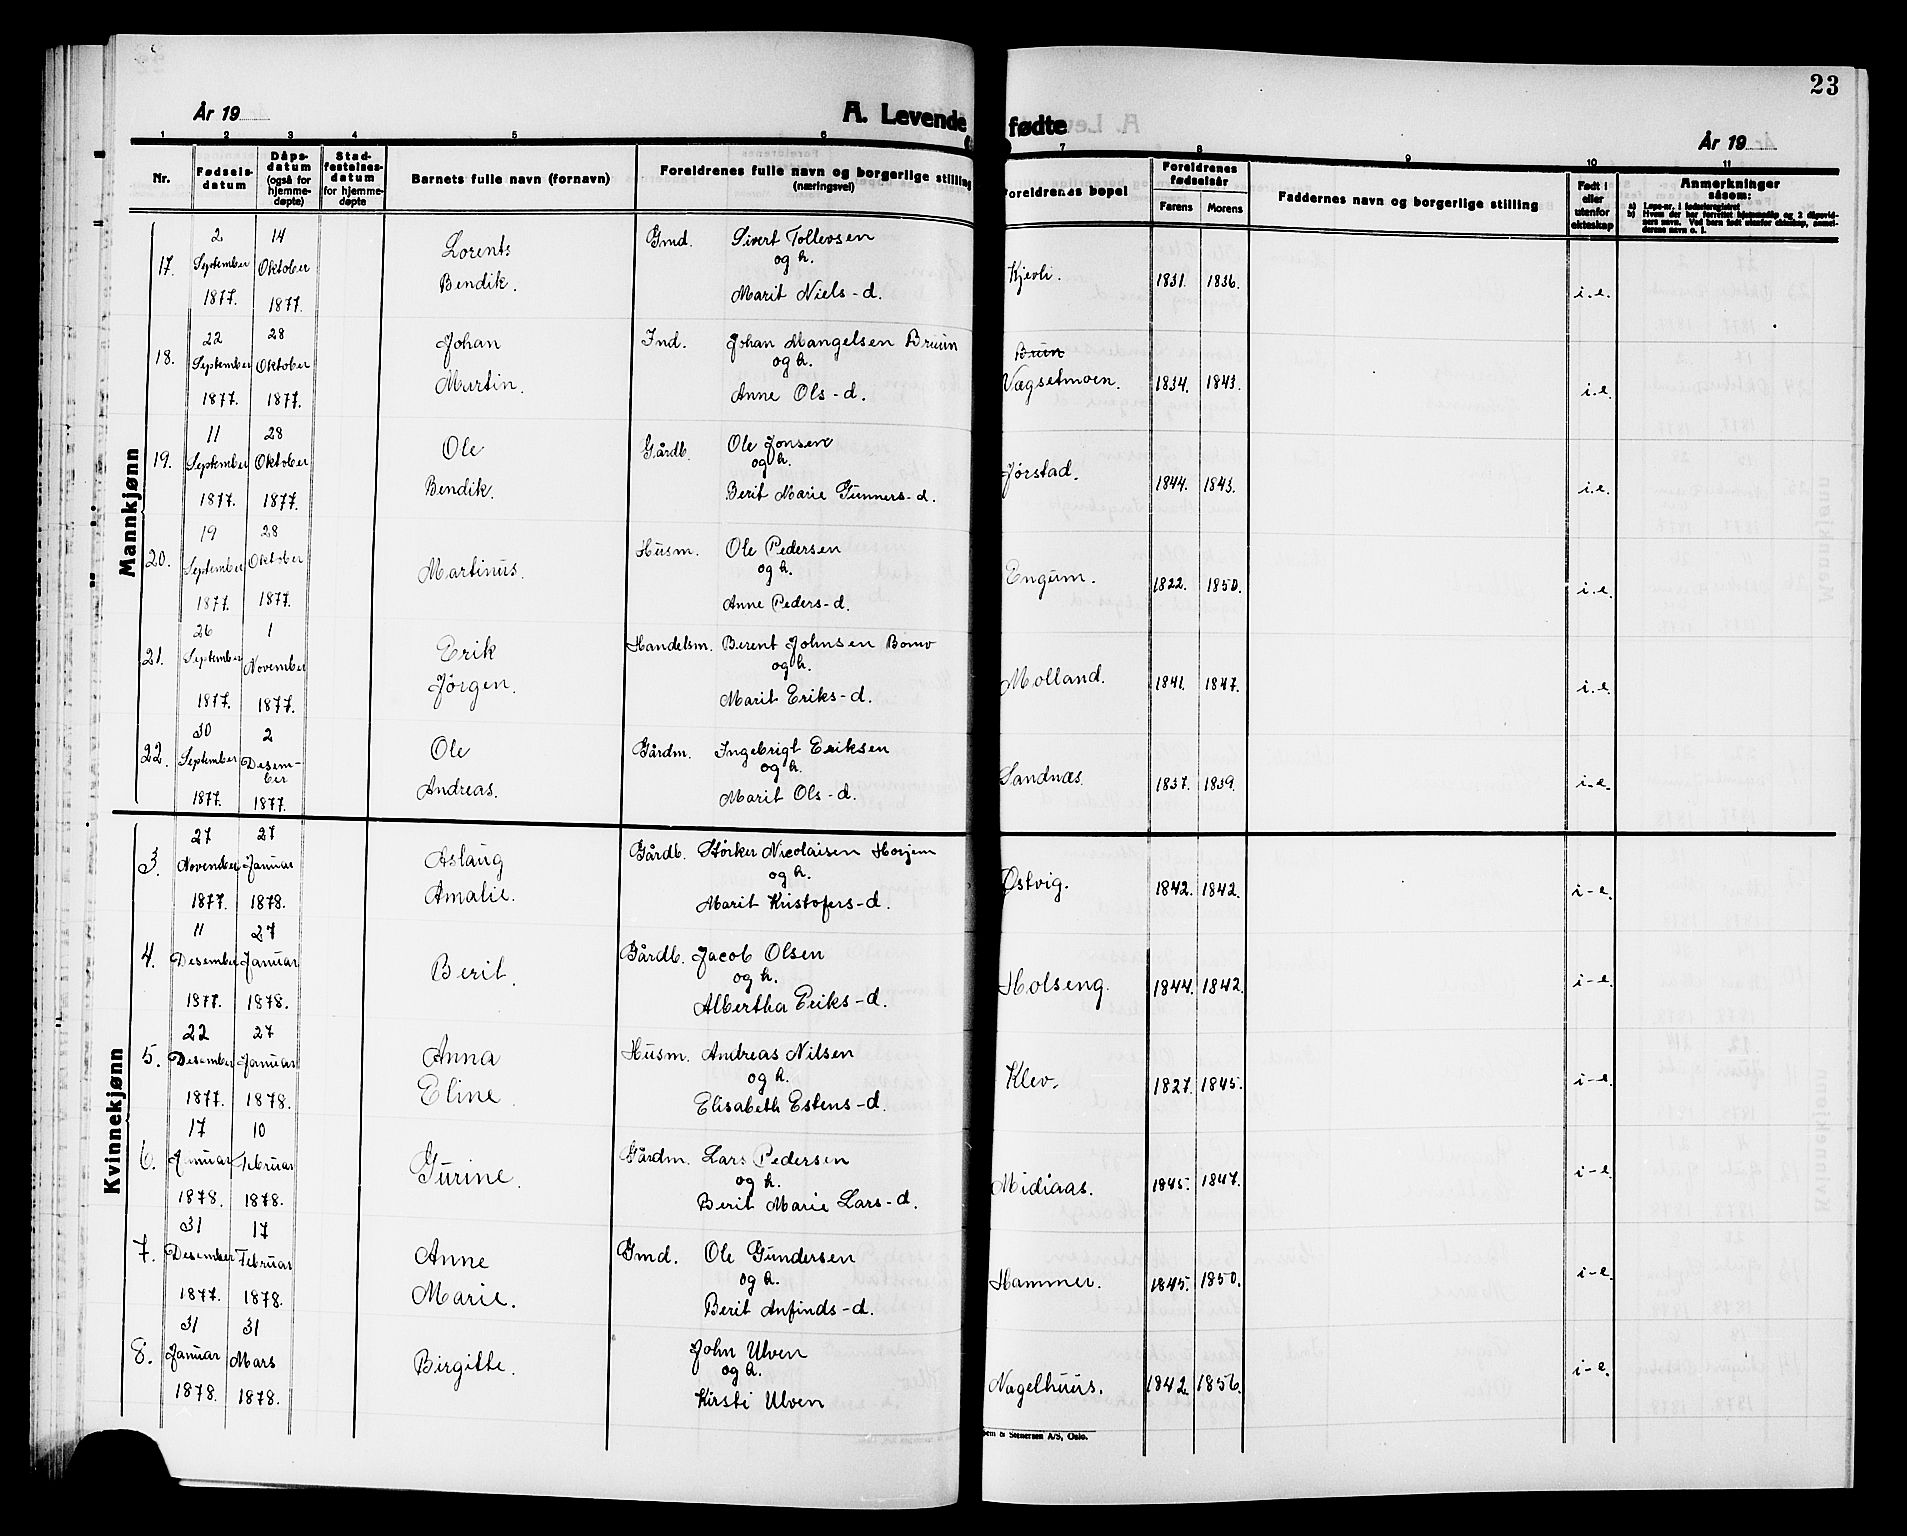 23
År 19
A. Levende fødte
År 19
1 2 3 4 5 6 7 8 9 10 11
Nr. Fødselsdatum Dåpsdatum (også for hjemmedøpte) Stadfestelsesdatum for hjemmedøpte Barnets fulle navn (fornavn) Foreldrenes fulle navn og borgerlige stilling (næringsvei) Foreldrenes bopel Foreldrenes fødselsår Farens Morens Faddernes navn og borgerlige stilling Født i eller utenfor ekteskap Anmerkninger såsom:
Mannkjønn
2 14 Lorents Gmd. Sivert Tollevsen
17. September Oktober og h. Kjevli. 1831. 1836.
1877. 1877. Bendik. Marit Niels-d. i.e.
22 28 Johan Ind. Johan Mangelsen Bruun Brun
18. September Oktober og h.
1877. 1877. Martin. Anne Ols-d. Vægsetmoen. 1834. 1843. i.e.
11 28 Ole Gårdb. Ole Jonsen
19. September Oktober og h. Jørstad. 1844. 1843.
1877. 1877. Bendik. Berit Marie Gunners-d. i.e.
19 28 Husm. Ole Pedersen
20. September Oktober Martinus. og h. Engum. 1822. 1850. i.e.
1877. 1877. Anne Peders-d.
26 1 Erik Handelsm. Berent Johnsen Bomo
21. September November og h. Molland. 1841. 1847. i.e.
1877. 1877. Jørgen. Marit Eriks-d.
30 2 Ole Gårdm. Ingebrigt Eriksen
22. September Desember og h. Sandnæs. 1837. 1839. i-e.
1877. 1877. Andreas. Marit Ols-d.
Kvinnekjønn
27 27 Aslaug Gårdb. Størker Nicolaisen Horjem
3. November Januar og h. Østvig. 1842. 1842. i-e.
1877. 1878. Amalie. Marit Kristofers-d.
11 27 Gårdb. Jacob Olsen
4. Desember Januar Berit. og h. Holseng. 1844. 1842. i-e.
1877. 1878. Albertha Eriks-d.
22 27 Anna Husm. Andreas Nilsen
5. Desember Januar og h. Klev. 1827. 1845. i-e.
1877. 1878. Eline. Elisabeth Estens-d.
17 10 Gårdm. Lars Pedersen
6. Januar Februar Gurine. og h. Midiaas. 1845. 1847. i-e.
1878. 1878. Berit Marie Lars-d.
31 17 Anne Gmd. Ole Gundersen
7. Desember Februar og h. Hammer. 1845. 1850. i-e.
1877. 1878. Marie. Berit Anfinds-d.
31 31 John Ulven
8. Januar Mars Birgitte. og h. Nagelhuus. 1842. 1856. i-e.
1878. 1878. Kirsti Ulven
& Stenersen A/S, Oslo.